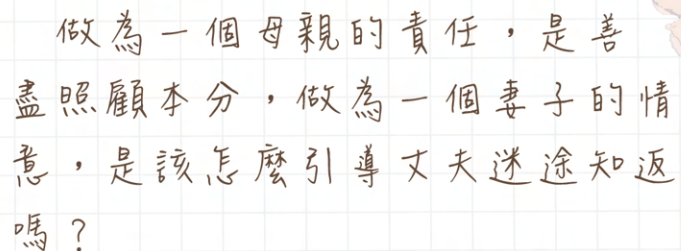 做為一個母親的責任，是善
盡照顧本分，做為一個妻子的情
意，是該怎麼引導丈夫迷途知返
嗎？